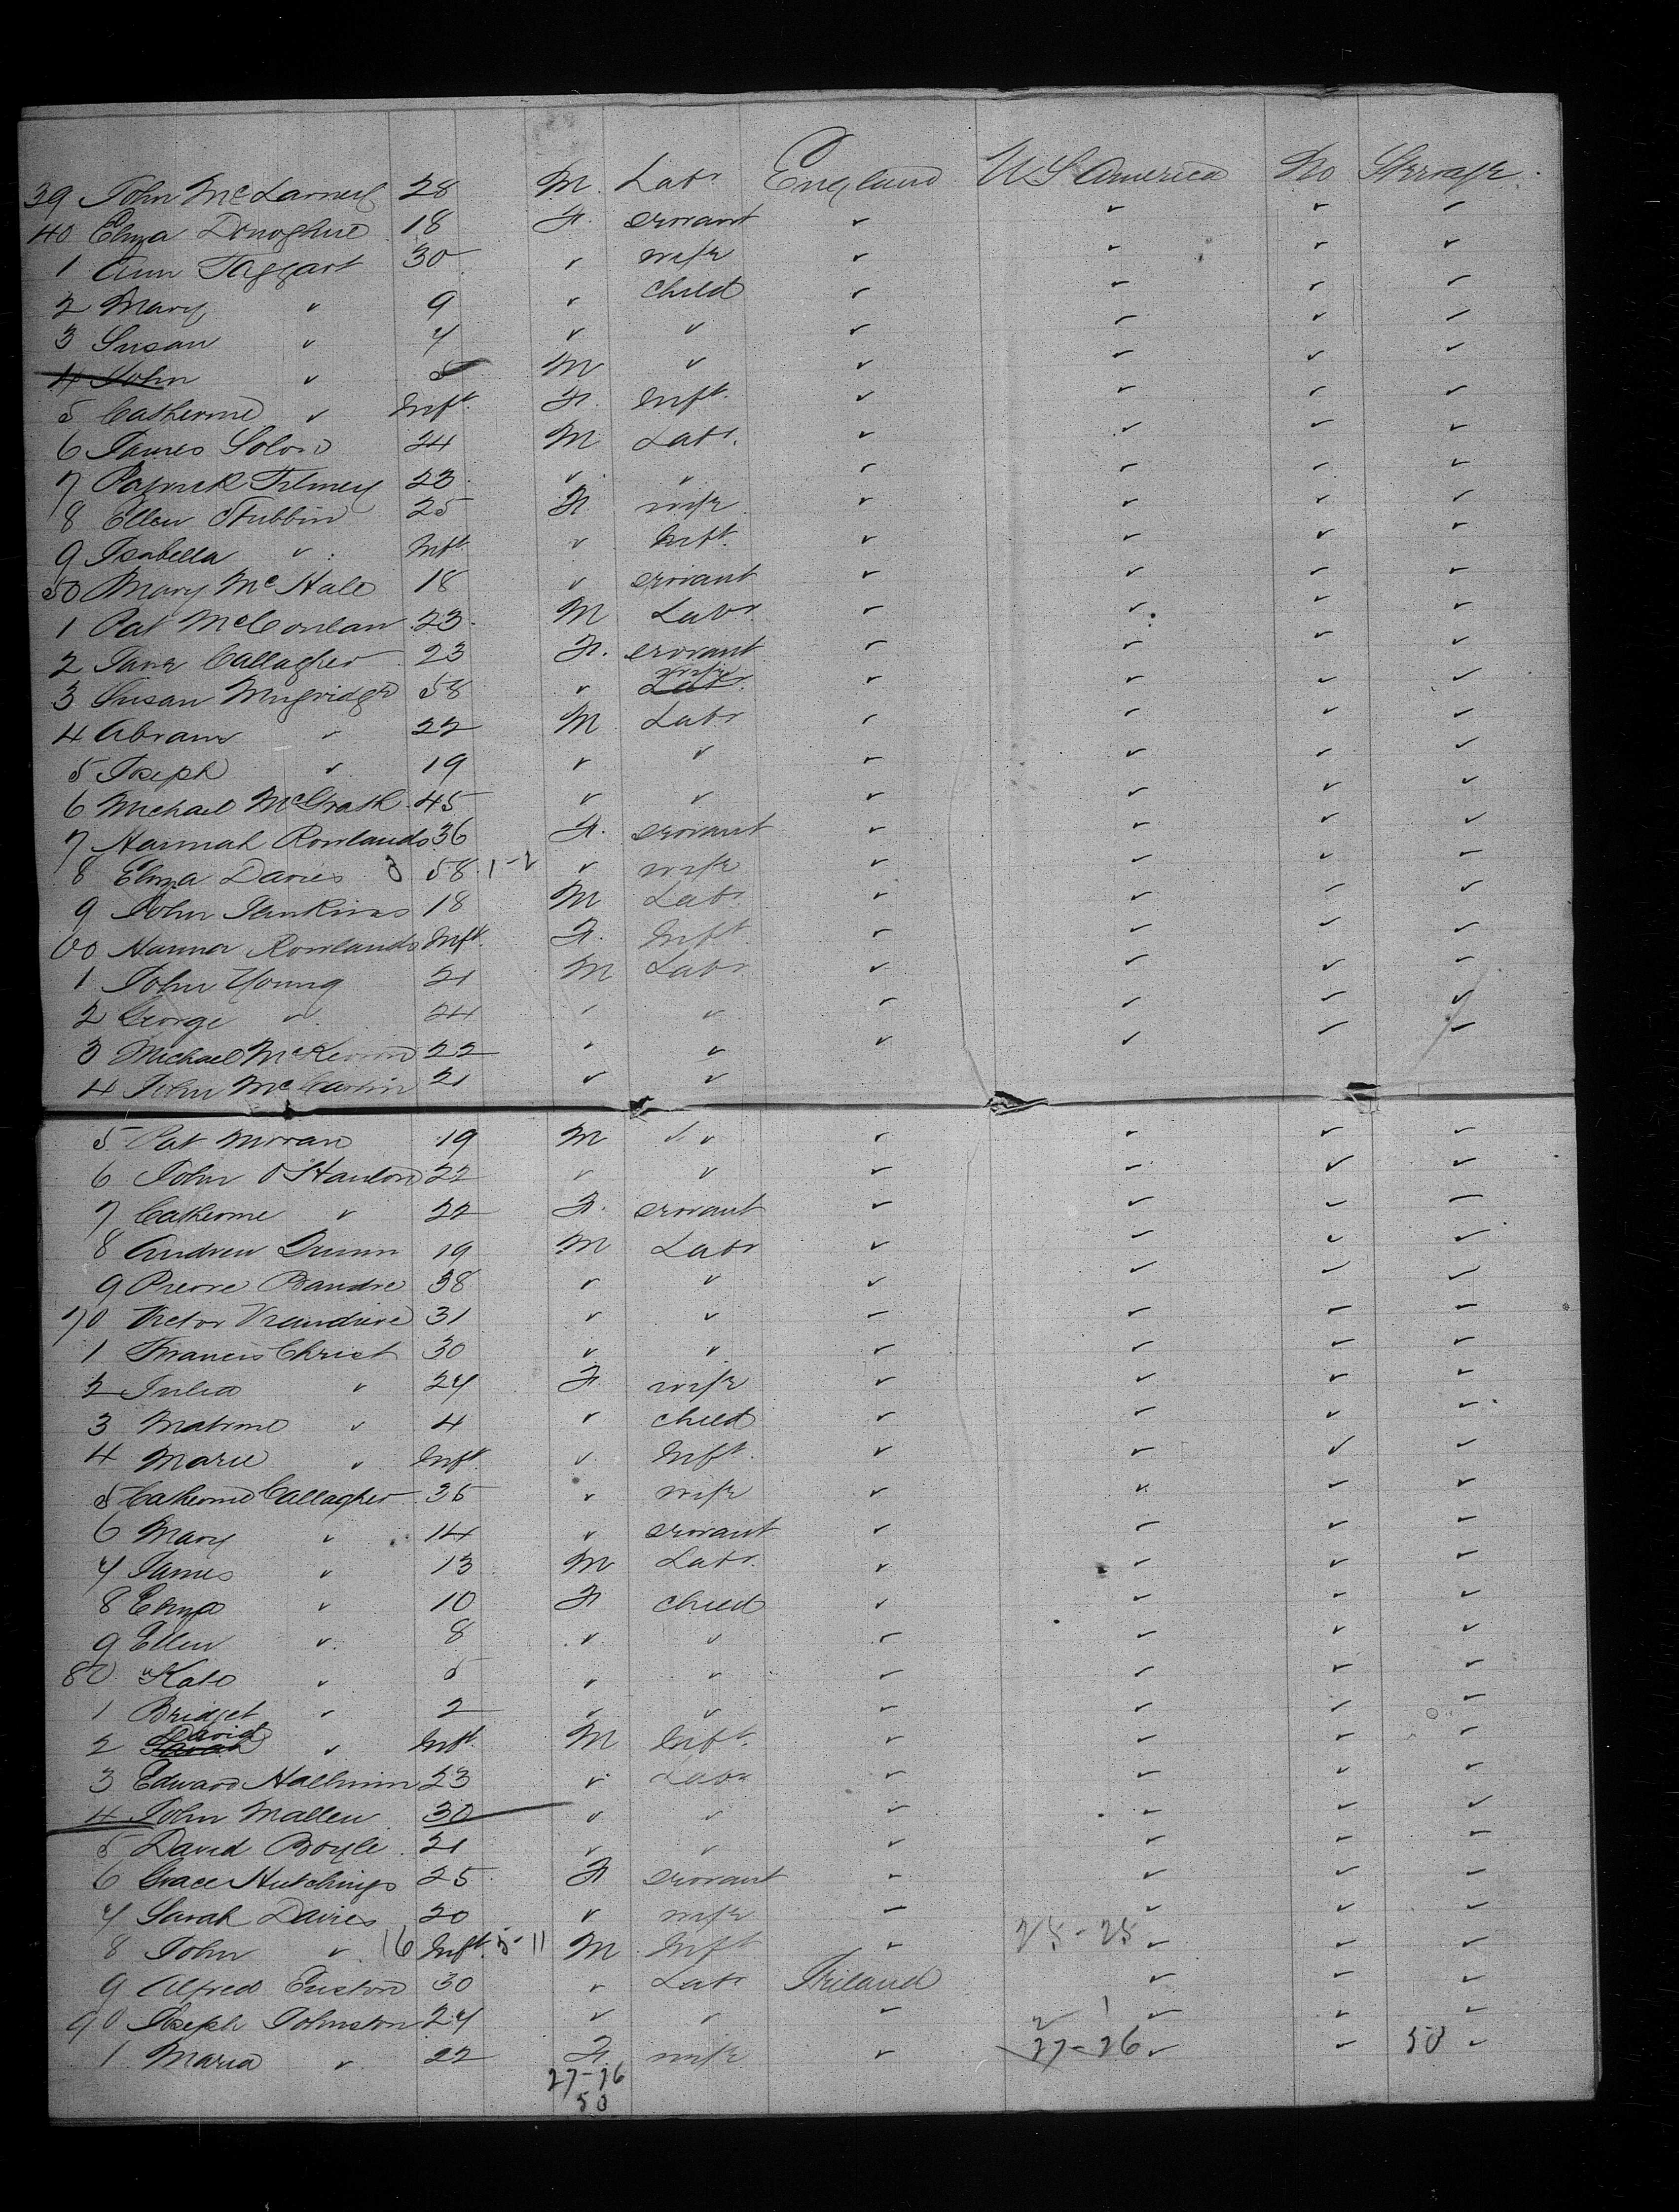 39 John McLarney 28 M. Labr England U S America No Steerage
40 Eliza Donoghue 18 F. servant " " " "
1 Ann Taggart 30 " wife " " " "
2 Mary " 9 " child " " " "
3 Susan " 7 " " " " " "
4 John " 5 M " " " " "
5 Catherine " Inft. F. Inft. " " " "
6 James 24 M Labr. " " " "
7 Patrick 23 " " " " " "
8 Ellen Stubbin 25 F wife " " " "
9 Isabella " Inft. " Inft. " " " "
50 Mary McHale 18 " servant " " " "
1 Pat McConlan 23 M Labr " " " "
2 Jane Callagher 23 F. servant " " " "
3 Susan Mugridge 58 " wife Labr. " " " "
4 Abram " 22 M Labr " " " "
5 Joseph " 19 " " " " " "
6 Michael McGrath 45 " " " " " "
7 Hannah Rowlands 36 F. servant " " " "
8 Eliza Davies 3 58 1-2 " wife " " " "
9 John Jenkins 18 M Labr " " " "
60 Hanna Rowlands Inft. F. Inft. " " " "
1 John Young 21 M Labr " " " "
2 George " 24 " " " " " "
3 Michael 22 " " " " " "
4 John 21 " "
5 Pat Moran 19 M " " " " "
6 John O'Hanlon 22 " " " " " "
7 Catherine " 22 F. servant " " " "
8 Andrew Dunn 19 M Labr " " " "
9 Pierre Baudre 38 " " " " " "
70 Victor 31 " " " " " "
1 Francis Christ 30 " " " " " "
2 Julia " 27 F wife " " " "
3 " 4 " child " " " "
4 Marie " Inft. " Inft. " " " "
5 Catherine Callagher 35 " wife " " " "
6 Mary " 14 " servant " " " "
7 James " 13 M Labr. " " " "
8 Eliza " 10 F child " " " "
9 Ellen " 8 " " " " " "
80 Kate " 5 " " " " " "
1 Bridget " 2 " " " " " "
2 David Sarah " Inft. M Inft. " " " "
3 Edward Hallinin 23 " Labr " " " "
4 John Mallen 30 " " " " " "
5 David Boyle 21 " " " " " "
6 Grace Hutchings 25 F servant " " " "
7 Sarah Davies 20 " wife " " " "
8 John " 16 Inft. 5-11 M Inft " 25-25 " " "
9 Alfred Euston 30 " Labr Ireland " " "
90 Joseph Johnston 27 " " " " " "
1 Maria " 22 F. wife " 27-26 " " 50 "
27-26
50